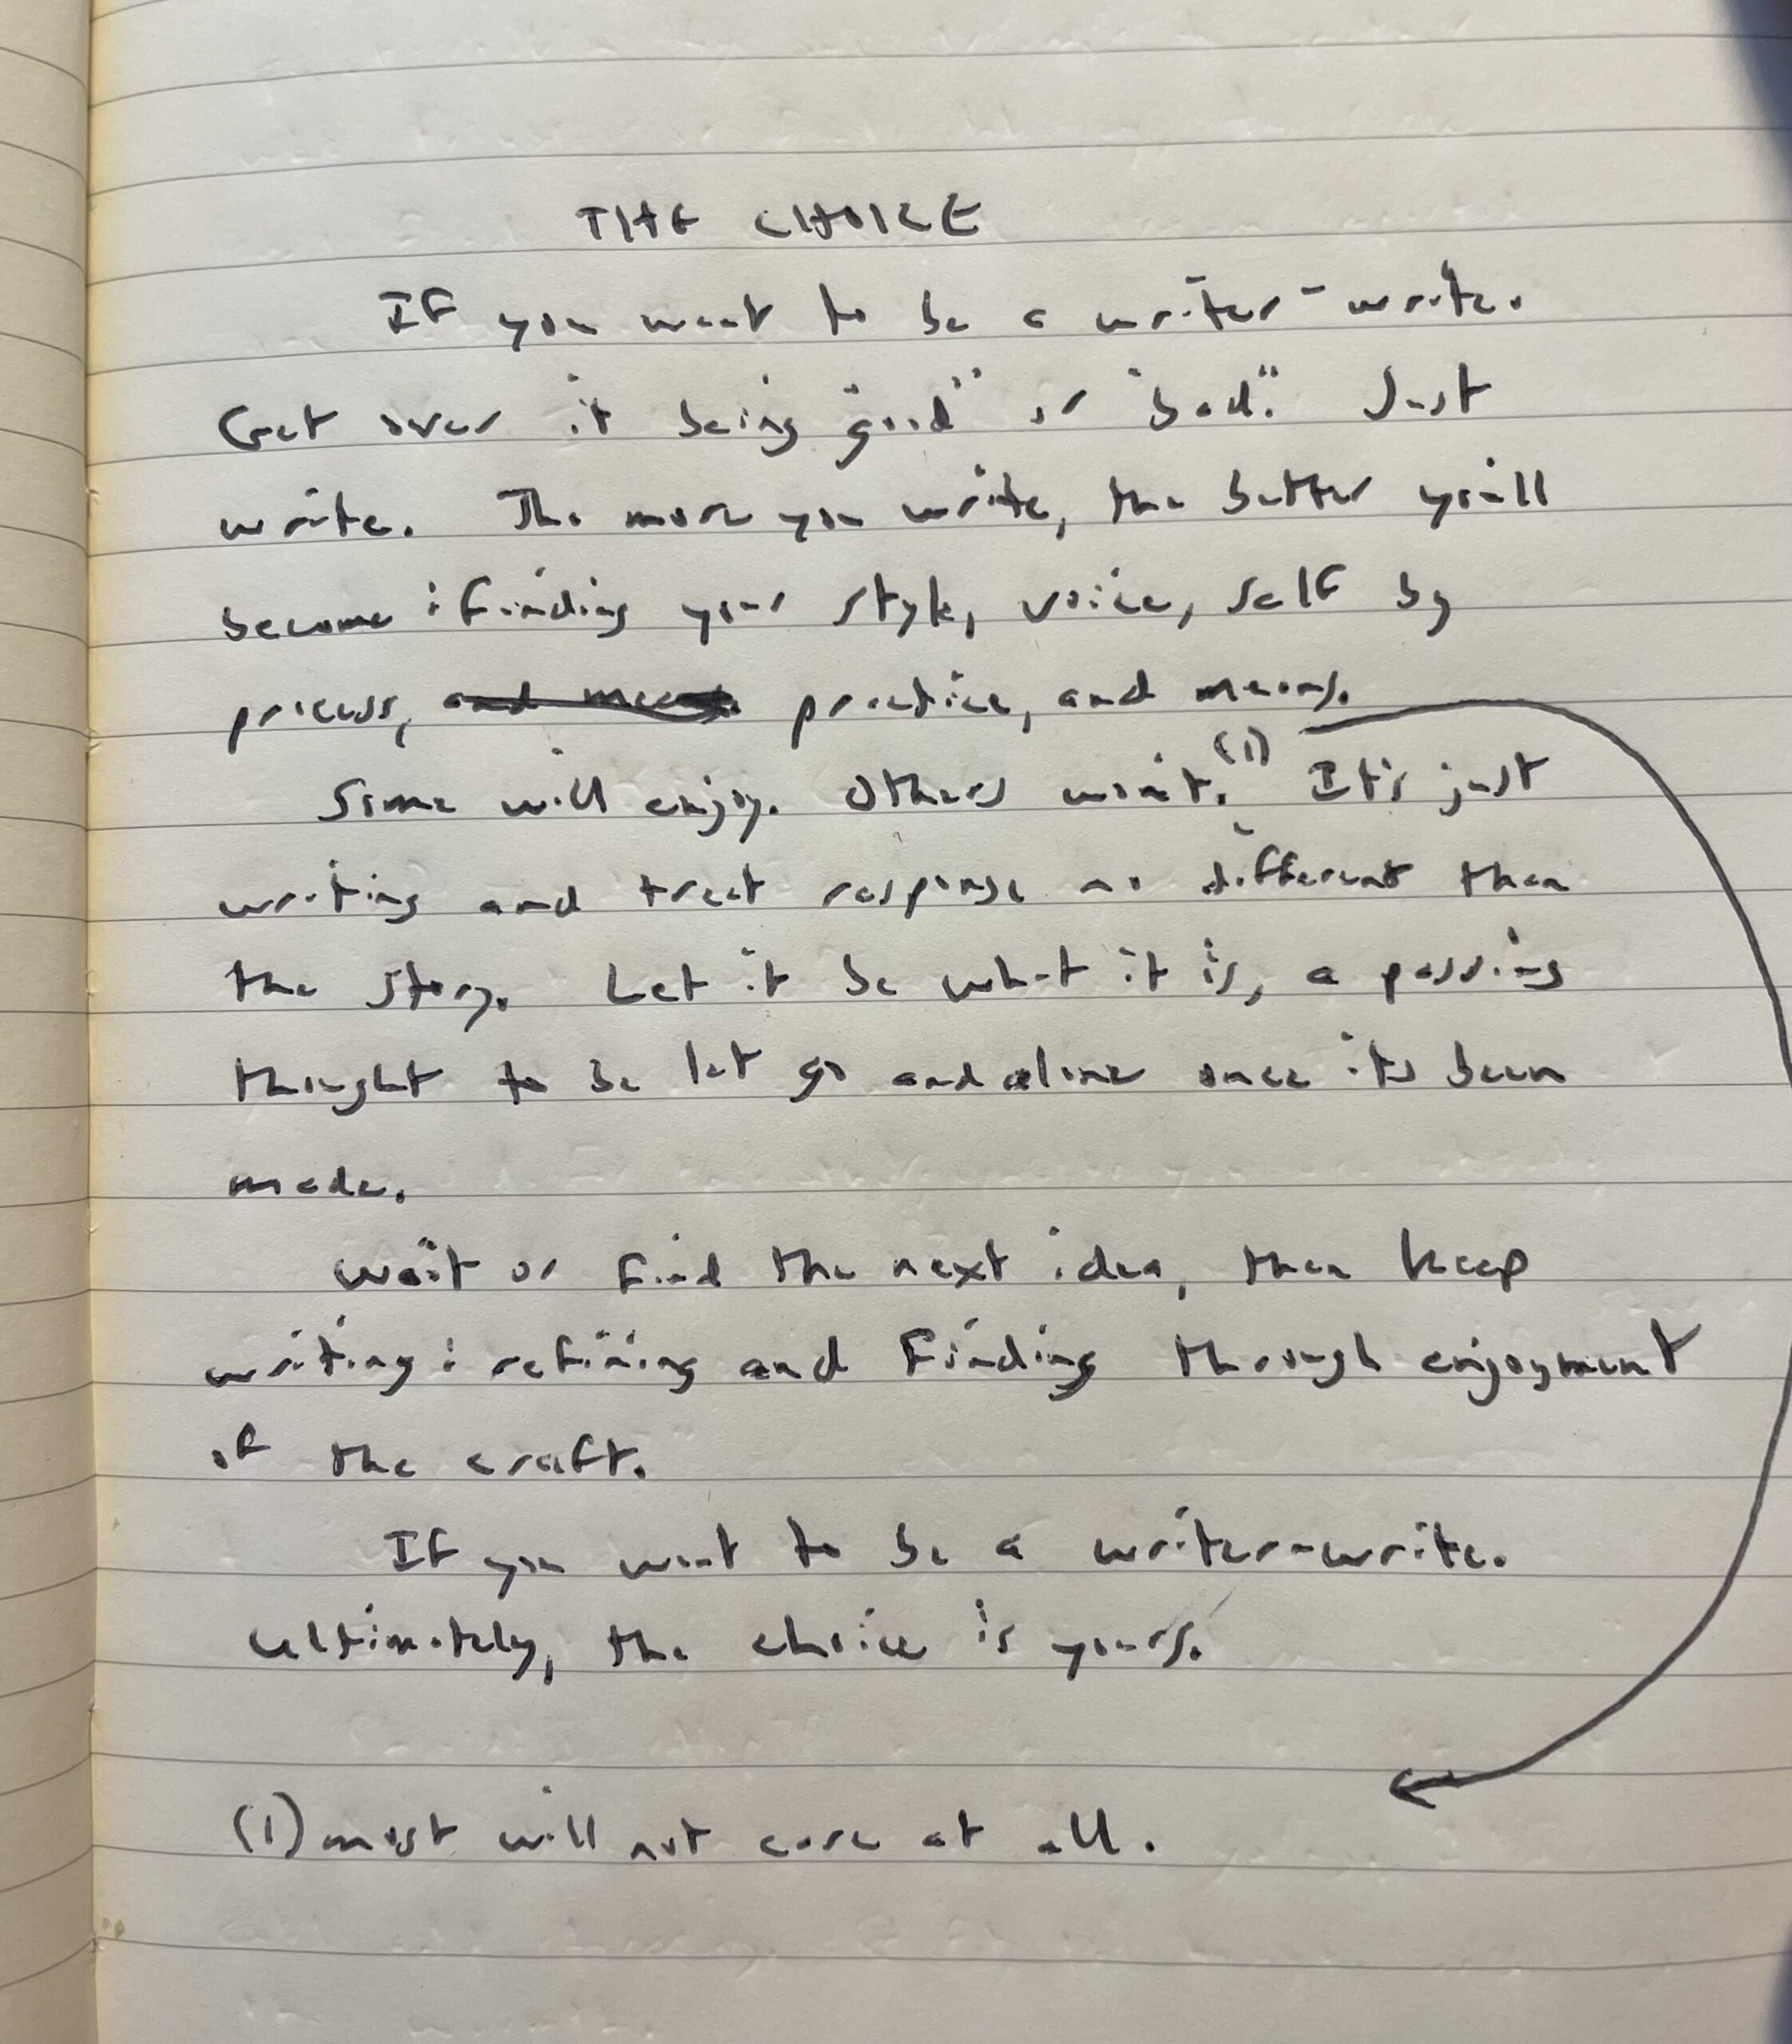 THE CHOICE
If you want to be a writer - write.
Get over it being "good" or "bad". Just
write. The more you write, the better you'll
become : finding your style, voice, self by
process, and means. practice, and means.
Some will enjoy. Others won't.(1) It's just
writing and treat response no different then
the story. Let it be what it is, a passing
thought to be let go and alone once it's been
made.
Wait or find the next idea, then keep
writing : refining and finding through enjoyment
of the craft.
If you want to be a writer-write.
Ultimately, the choice is yours.
(1) most will not care at all.